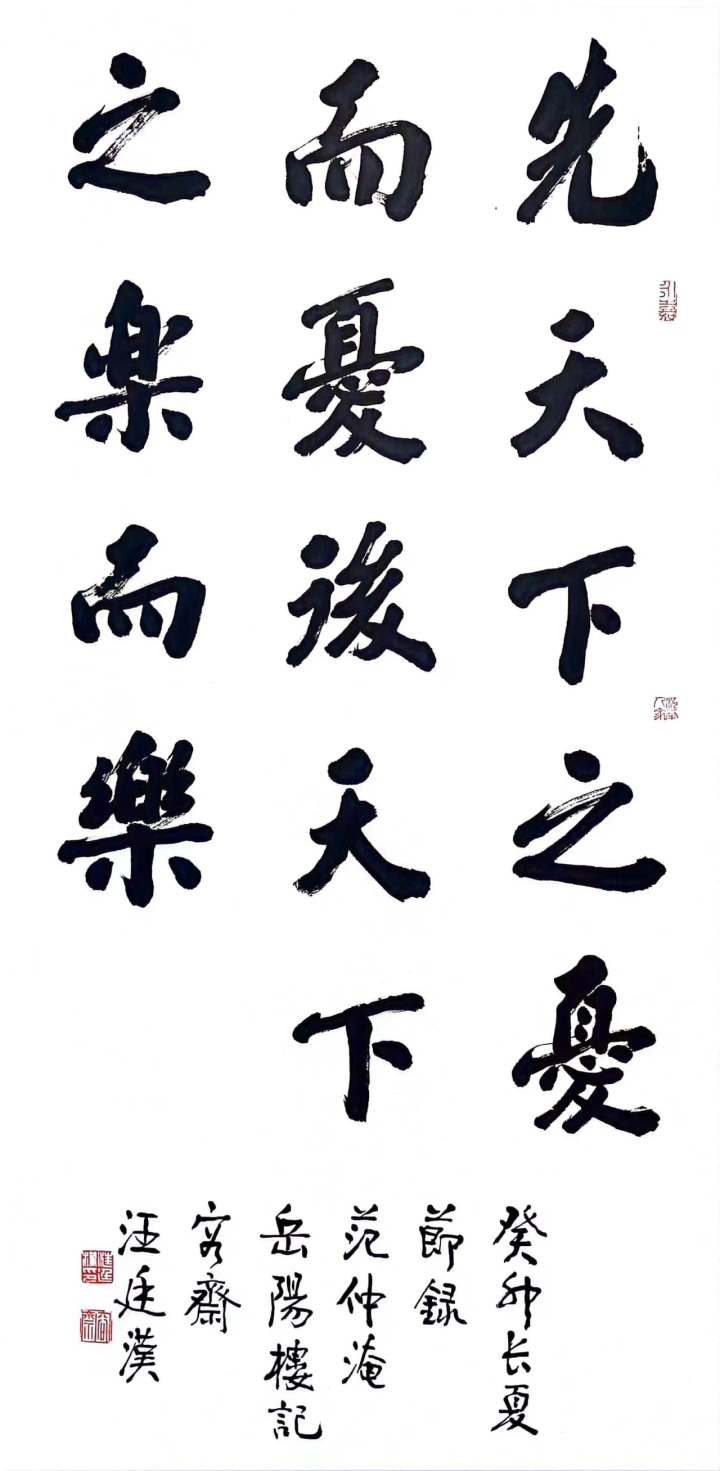 先天下之憂
而憂後天下
之楽而樂
癸卯长夏
節録
范仲淹
岳陽樓記
容齋
汪廷漢